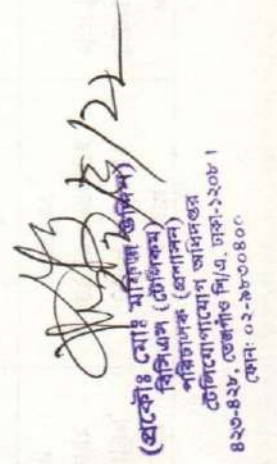 (প্রকৌঃ মোঃ
বিসিএস (টেলিকম)
পরিচালক (প্রশাসন)
টেলিযোগাযোগ অধিদপ্তর
৪২৩-৪২৮, তেজগাঁও শি/এ, ঢাকা-১২০৮ ।
ফোন: ০২-৯৮৩০৪০০